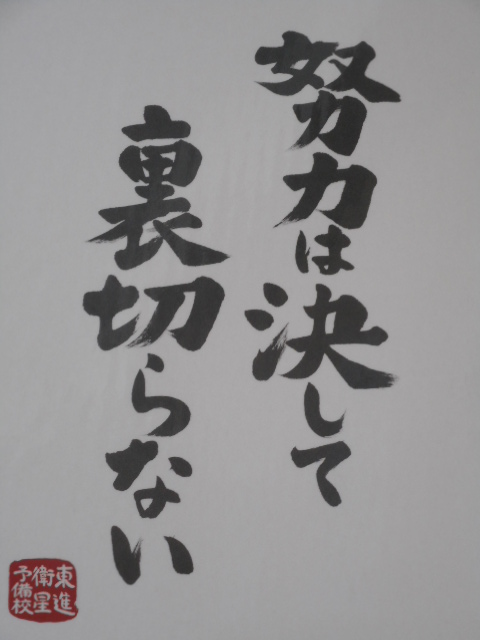 努力は決して
裏切らない
東進
衛星
予備校